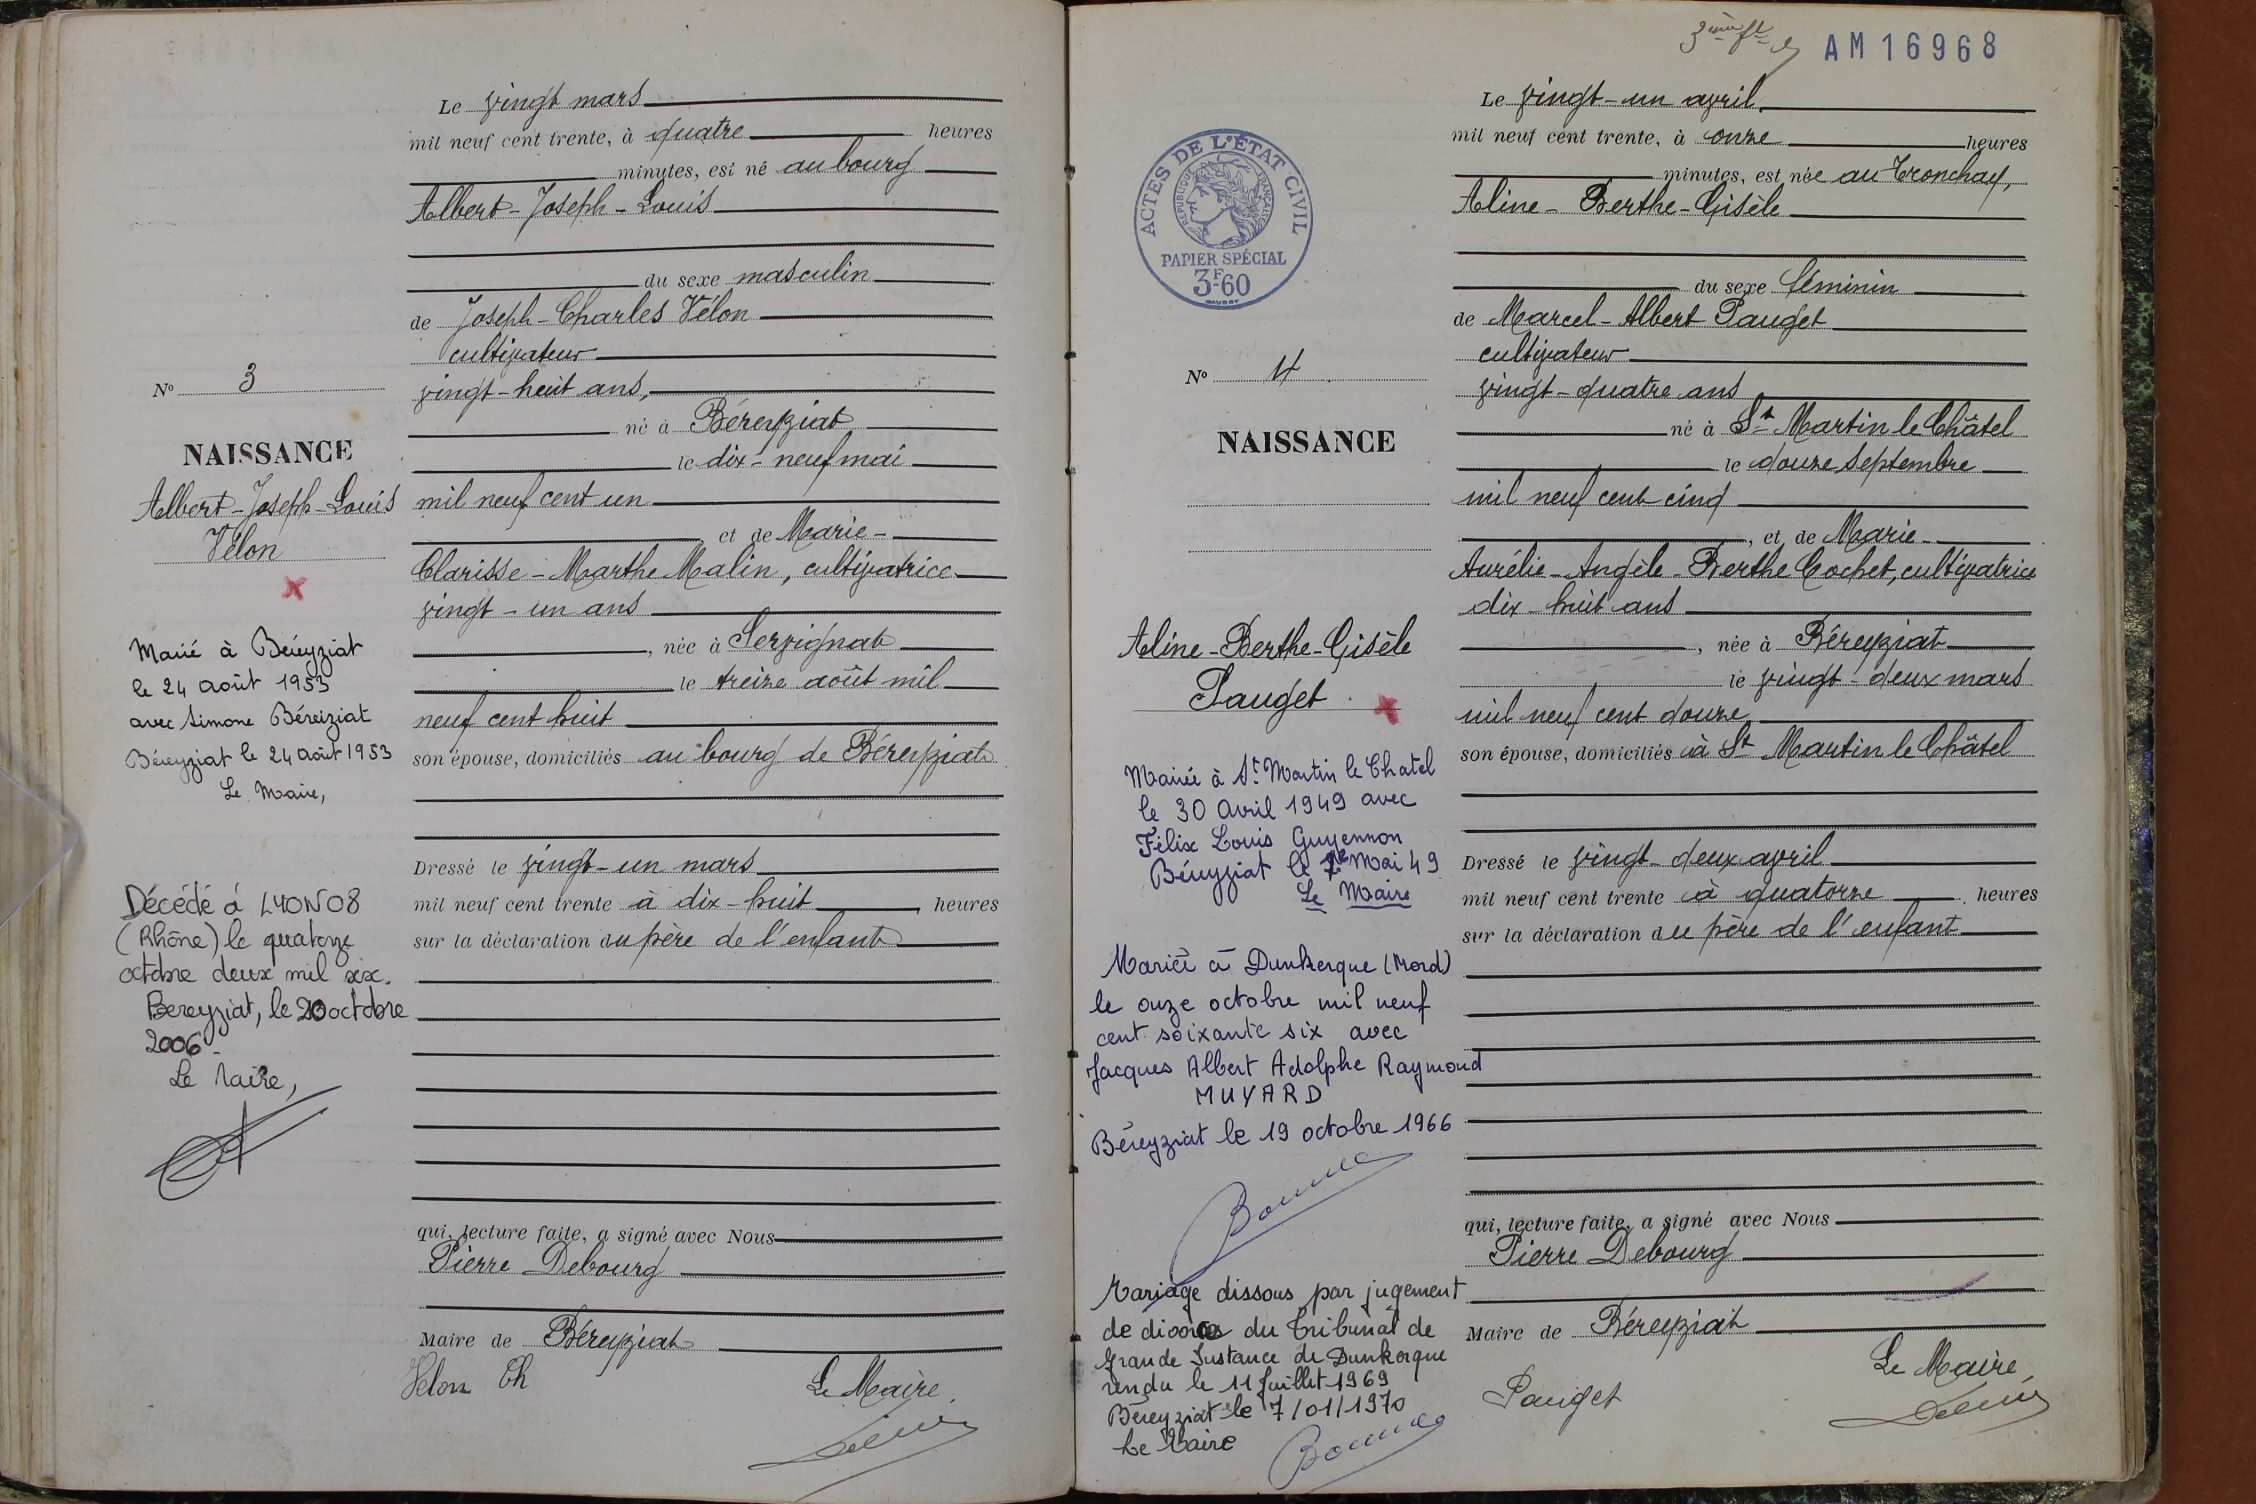 Le vingt mars
mil neuf cent trente, à quatre heures
minutes, est né au bourg
Albert-Joseph-Louis
du sexe masculin
de Joseph-Charles Vélon
cultivateur
vingt-huit ans,
né à Béreyziat
le dix-neuf mai
mil neuf cent un
et de Marie-
Clarisse-Marthe Malin, cultivatrice
vingt-un ans
, née à Servignat
le treize août mil
neuf cent huit
son épouse, domiciliés au bourg de Béreyziat
Dressé le vingt-un mars
mil neuf cent trente à dix-huit, heures
sur la déclaration du père de l'enfant
qui, lecture faite, a signé avec Nous
Pierre Debourg
Maire de Béreyziat
Velon Ch
Le Maire.
No 3
NAISSANCE
Albert-Joseph-Louis
Vélon
Marié à Béreyziat
le 24 août 1953
avec Simone Béreiziat
Béreyziat le 24 août 1953
Le Maire,
Décédé à LYON 08
(Rhône) le quatorze
octobre deux mil six.
Bereyziat, le 20 octobre
2006-
Le Maire,
3ème ft
AM16968
ACTES DE L'ÉTAT CIVIL
RÉPUBLIQUE FRANÇAISE
PAPIER SPÉCIAL
3F60
No 4
NAISSANCE
Aline-Berthe-Gisèle
Pauget
Mariée à St Martin le Chatel
le 30 Avril 1949 avec
Félix Louis Guyennon
Béreyziat le Mai 49
Le Maire
Mariée à Dunkerque (Nord)
le onze octobre mil neuf
cent soixante six avec
Jacques Albert Adolphe Raymond
MUYARD
Béreyziat le 19 octobre 1966
Mariage dissous par jugement
de divorce du Tribunal de
Grande Instance de Dunkerque
rendu le 11 Juillet 1969
Béreyziat le 7/01/1970
Le Maire
Le vingt-un avril
mil neuf cent trente, à onze heures
minutes, est née au Tronchay,
Aline-Berthe-Gisèle
du sexe féminin
de Marcel-Albert Pauget
cultivateur
vingt-quatre ans
né à St Martin le Châtel
le douze septembre
mil neuf cent cinq
, et de Marie-
Aurélie-Angèle-Berthe Cochet, cultivatrice
dix-huit ans
, née à Béreyziat
le vingt-deux mars
mil neuf cent douze
son épouse, domiciliés à St Martin le Châtel
Dressé le vingt-deux avril
mil neuf cent trente à quatorze heures
sur la déclaration du père de l'enfant
qui, lecture faite, a signé avec Nous
Pierre Debourg
Maire de Béreyziat
Le Maire,
Pauget